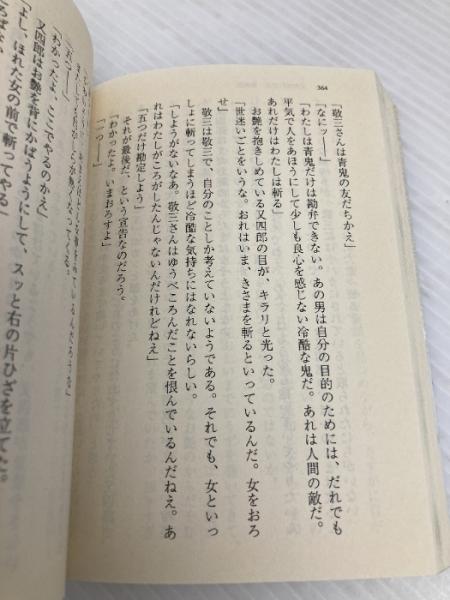 364
「敬三さんは青鬼の友だちかえ」
「なにッ――」
「わたしは青鬼だけは勘弁できない。あの男は自分の目的のためには、だれでも
平気で人をあほうにして少しも良心を感じない冷酷な鬼だ。あれは人間の敵だ。
あれだけはわたしは斬る」
お艶を抱きしめている又四郎の目が、キラリと光った。
「世迷いごとをいうな。おれはいま、きさまを斬るといっているんだ。女をおろ
せ」
敬三は敬三で、自分のことしか考えていないようである。それでも、女といっ
しょに斬ってしまうほど冷酷な気持ちにはなれないらしい。
「しようがないなあ。敬三さんはゆうべころんだことを恨んでいるんだねえ。あ
れはわたしがころがしたんじゃないんだけれどねえ」
「五つだけ勘定しよう」
それが最後だ、という宣告なのだろう。
「わかったよ。いまおろすよ」
「一つ――」
「五つ――」
「わかったよ、ここでやるのかえ」
又四郎はお艶を背にかばうようにして、スッと右の片ひざを立てた。
「よし、ほれた女の前で斬ってやる」